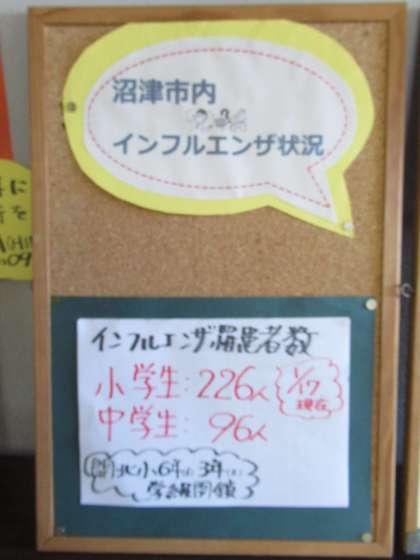 沼津市内
インフルエンザ状況
インフルエンザ罹患者数
小学生:226人
1/17
現在
中学生:96人
北小6年 3年
学級閉鎖